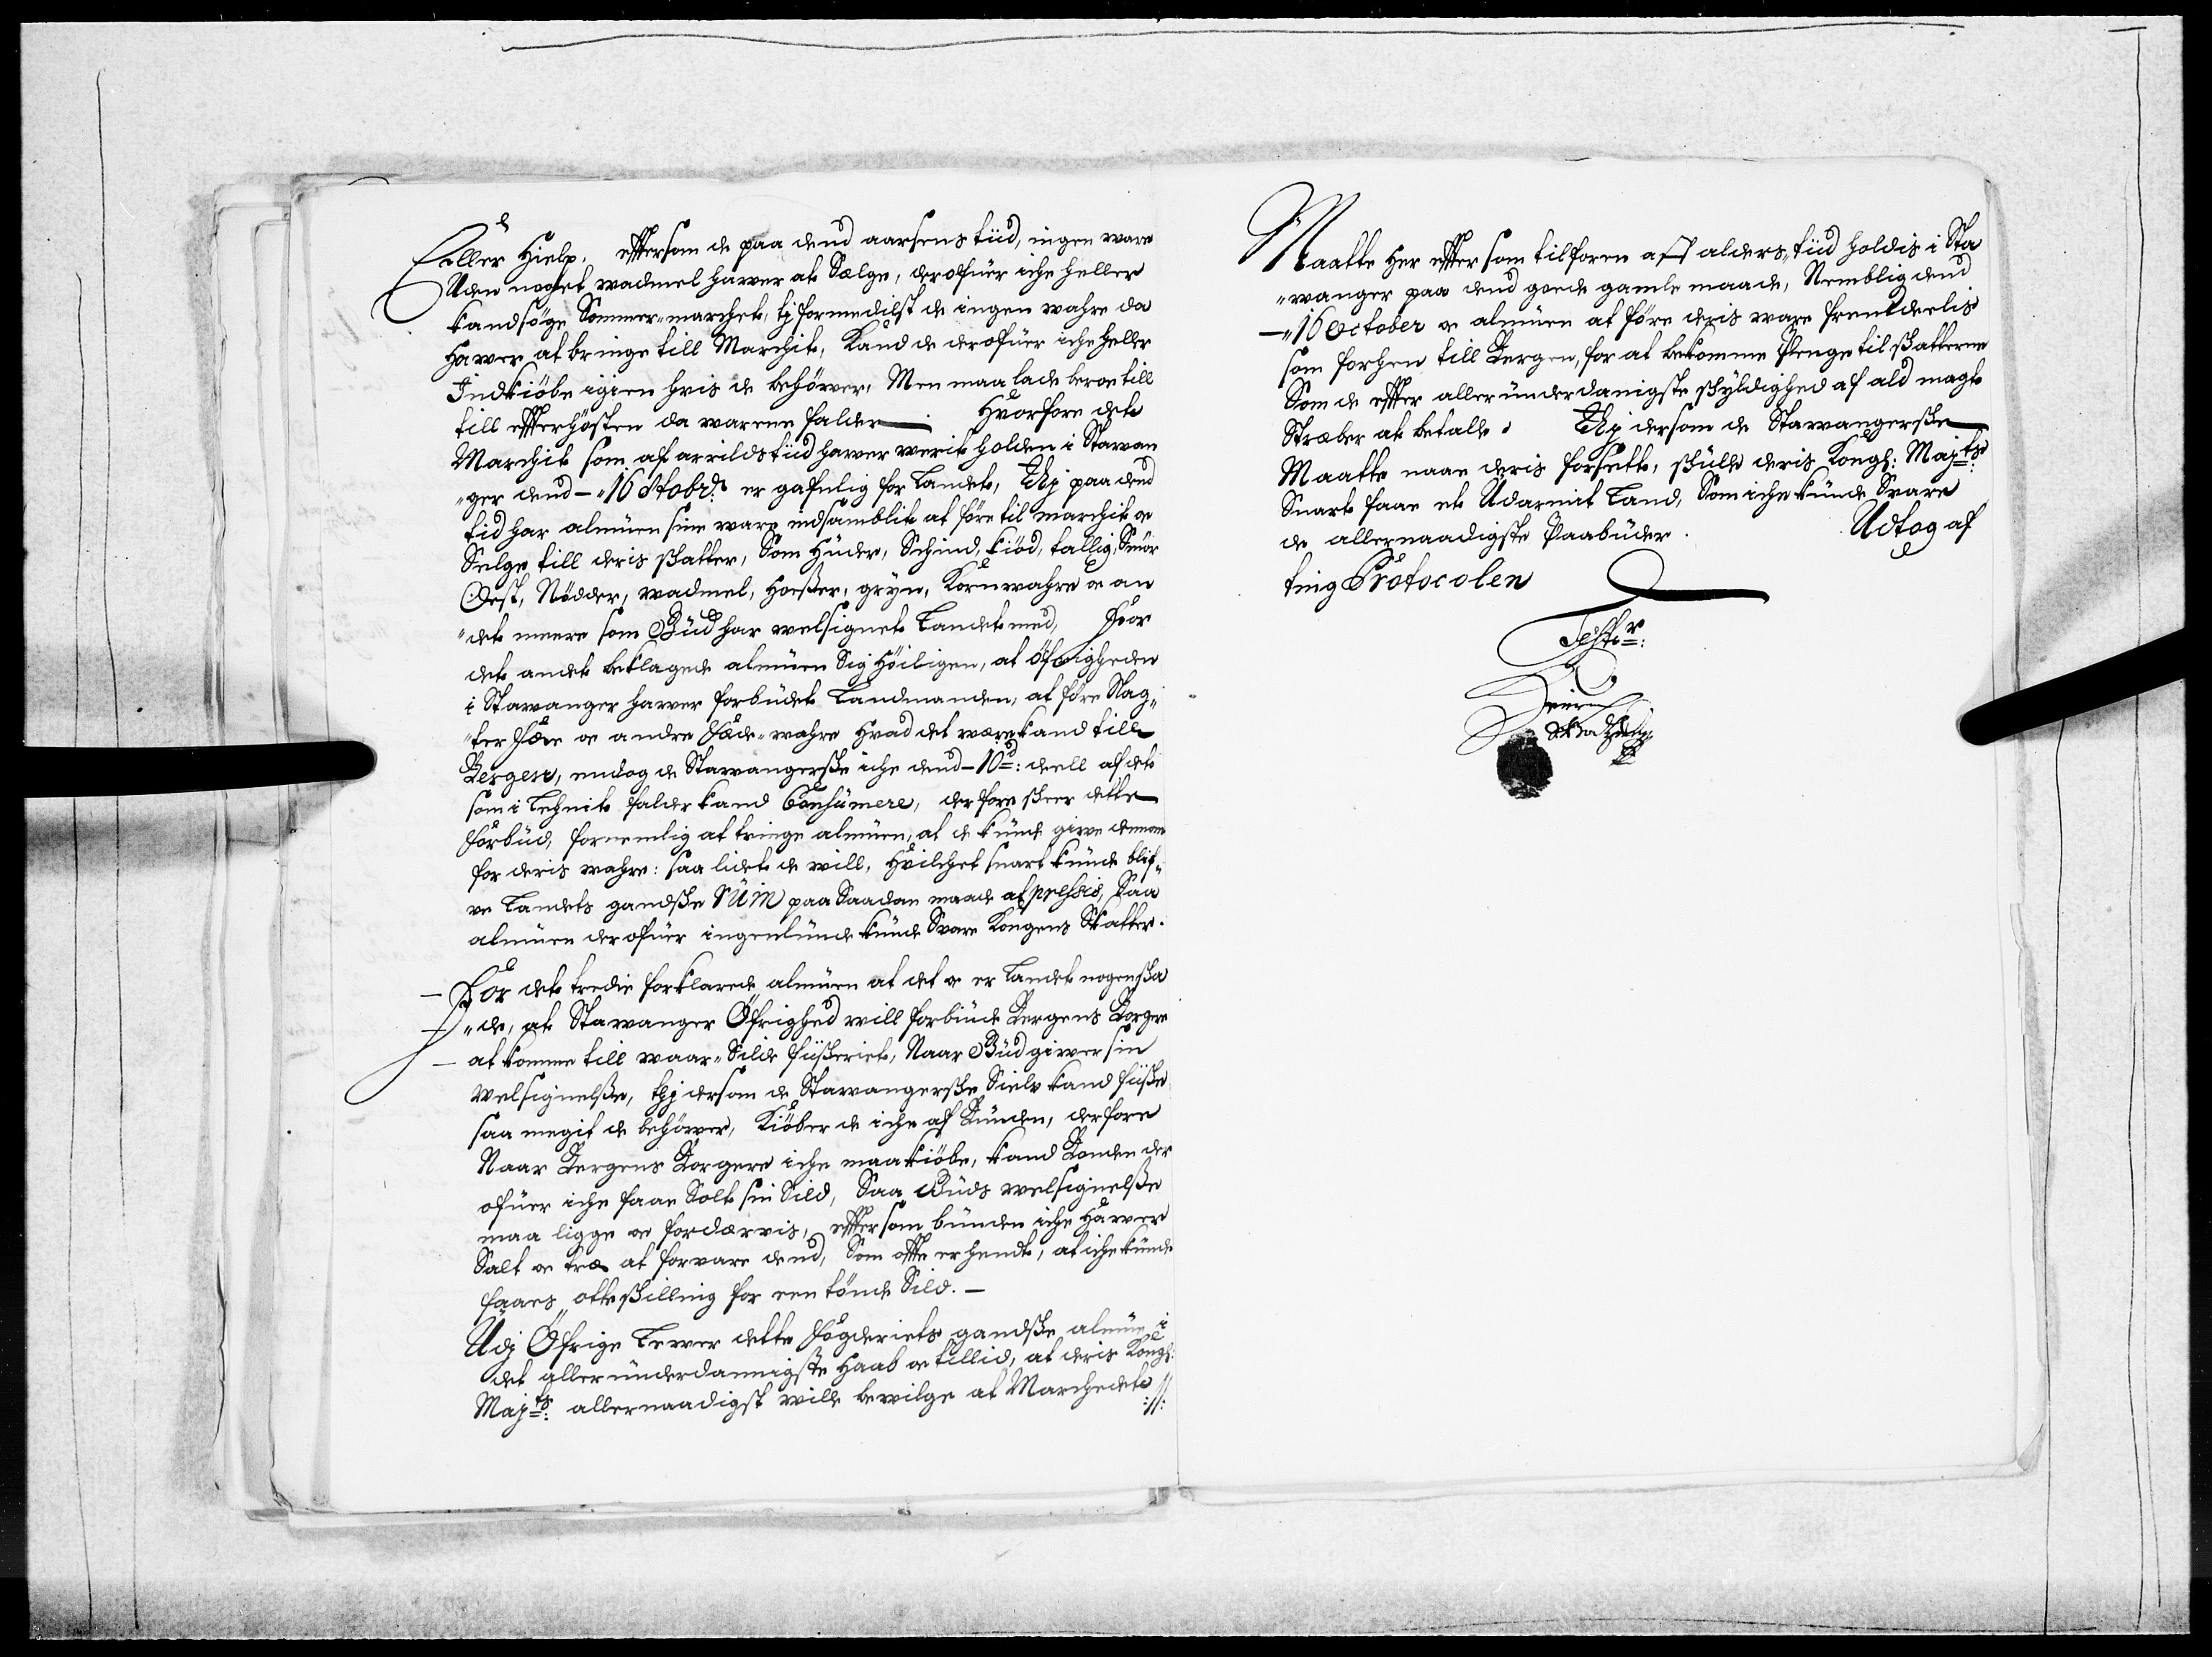 Eller Hielp. effterSom de paa dend aarsens tüd, ingen ware
Uden noget wadmel hawer at Sælge, derofuer iche heller
kand söge Sommer-marchet, tj formedelst de ingen wahre da
hawer at bringe till Marchit, Kand de derofuer iche heller
Indkiöbe igien hvis de behöwer, Men maa lade beroe till
till effterhösten da warene falder Hvorfore det
Marchit som af arrilds tüd hawer werit holden i Stawan
"ger dend - 16 octobr: er gafnlig for Landet, Thj paa dend
tid har almüen sine ware indsamblit at före til marchit oc
Selge till deris Skatter, Som Hüder, Schind, kiöd, tallig, Smör
Oest, Nödder, wadmel, Hoeßer, gryn, Kornwahre oc an
"det meere som Gud har welsignet Landet med, For
det andet beklagede almüen Sig Höiligen, at öfrigheden
i Stawanger hawer forbüdet Landmanden, at före Slag
"ter fæe oc andre fæde-wahre hvad det wære kand till
Bergen, endog de Stawangerske iche dend - 10d: deell af det
som i Lehnit falder kand Consümere, derfore skeer dette
forbüd, fornemlig at tvinge almüen, at de kunde give dennem
for deris wahre: saa lidet de will, Hvilchet snart künde blif
ve Landets gandske Rüin paa Saadan maade at pressis, Saa
almüen derofuer ingenlunde künde Svare Kongens Skatter.
- For det tredie forklarede almüen at det oc er Landet nogen ska
"de, at Stawanger Öfrighed will forbiude Bergens Borgere
- at komme till waar-Silde fiskeriet, Naar Gud giwer sin
Welsignelße, thj dersom de Stawangerske Sielv kand fiske
saa megit de behöwer, Kiöber de iche af Bunden, derfore
Naar Bergens Borgere iche maa kiöbe, kand Bonden der
ofuer iche faae Solt sin Sild, Saa Guds welsignelße
maa ligge oc fordærvis, effter som bünden iche Hawer
Salt oc træ at forvare dend, Som offte er hendt, at iche künde
faaes otte skilling for een tönde Sild. -
Udj Öfrige Lewer dette fögderiets gandske almüe i
det alleründerdannigste Haab oc tillid, at deris Kongl:
Majts: allernaadigst wille bewilge at Marchedet
://:
Maatte Her effter som tilforen aff alders tüd holdis i Sta
"wanger paa dend goede gamle maade, Nemblig dend
- 16 October oc almüen at före deris ware fremdeelis
som forhen till Bergen, for at bekomme Penge til skatterne
Som de effter alleründerdanigste skyldighed af ald magt
Stræber at betale. Thj dersom de Stawangerske
Maatte naae deris forsætt, skülle deris Kongl: Majts:
Snart faae et Udarmit Land, Som iche künde Svare
de allernaadigste Paabüder. Udtog af
ting Protocolen
Testr: